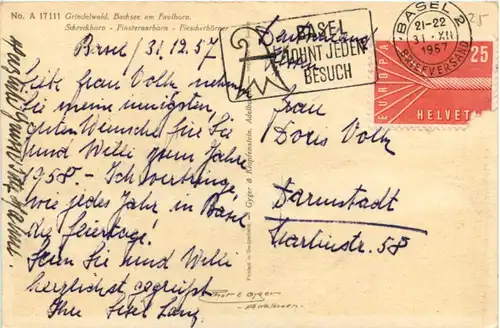 No. A 17111 Grindelwald, Bachsee am Faulhorn.
Schreckhorn - Finsteraarhorn - Fiescherhörner
Basel, 31.12.57
Liebe Frau Volk nehmen
Sie meine innigsten,
guten Wünsche für Sie
und Willi zum Jahre
1958. - Ich verbringe
wie jedes Jahr in Basel
die Feiertage!
Seien Sie und Willi
herzlichst gegrüsst
Ihre
BASEL
LOHNT JEDEN
BESUCH
BASEL 2
21-22
31.XII
1957
BRIEFVERSAND
EUROPA
25
HELVET
Frau
Doris Volk
Darmstadt
Martinstr. 58
Gyger & Klopfenstein, Adelboden